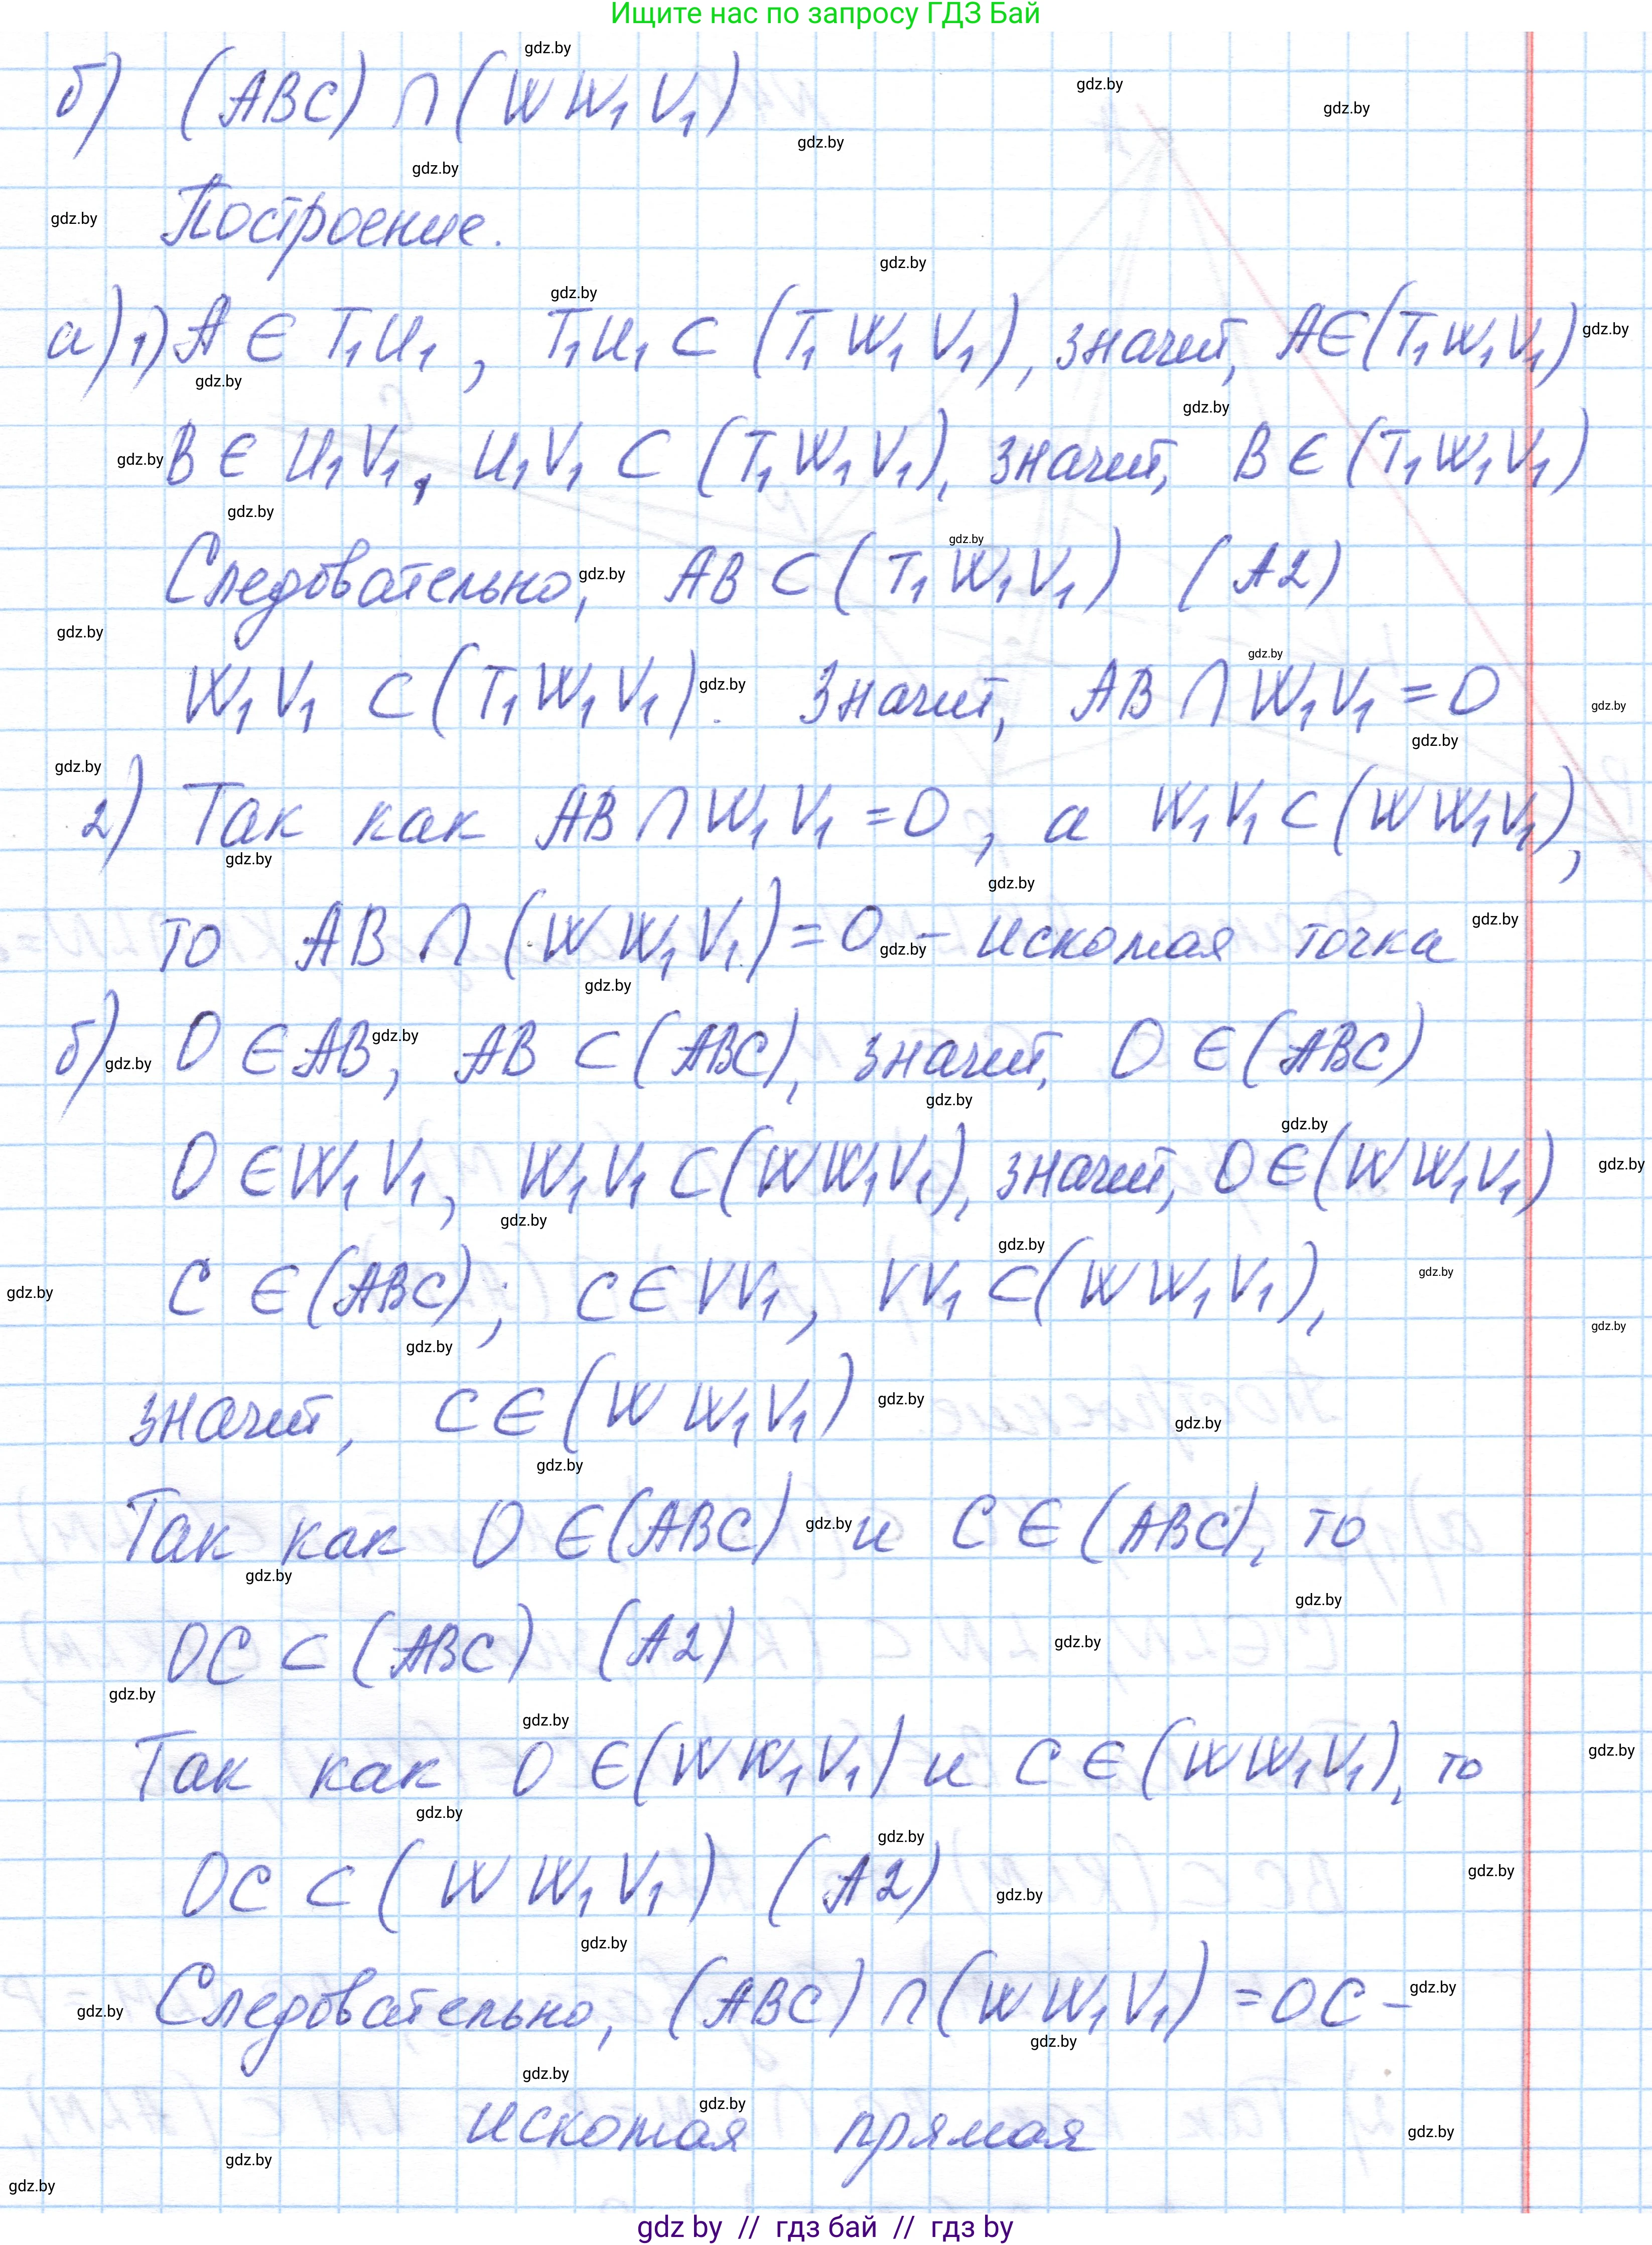 Ищите нас по запросу ГДЗ Бай
б) (ABC) ∩ (WW₁V₁)
Построение.
а) 1) A ∈ T₁U₁, T₁U₁ ⊂ (T₁W₁V₁), значит, A ∈ (T₁W₁V₁)
B ∈ U₁V₁, U₁V₁ ⊂ (T₁W₁V₁), значит, B ∈ (T₁W₁V₁)
Следовательно, AB ⊂ (T₁W₁V₁) (A2)
W₁V₁ ⊂ (T₁W₁V₁). Значит, AB ∩ W₁V₁ = O
2) Так как AB ∩ W₁V₁ = O, а W₁V₁ ⊂ (WW₁V₁),
то AB ∩ (WW₁V₁) = O – искомая точка
б) O ∈ AB, AB ⊂ (ABC), значит, O ∈ (ABC)
O ∈ W₁V₁, W₁V₁ ⊂ (WW₁V₁), значит, O ∈ (WW₁V₁)
C ∈ (ABC); C ∈ VV₁, VV₁ ⊂ (WW₁V₁),
значит, C ∈ (WW₁V₁)
Так как O ∈ (ABC) и C ∈ (ABC), то
OC ⊂ (ABC) (A2)
Так как O ∈ (WW₁V₁) и C ∈ (WW₁V₁), то
OC ⊂ (WW₁V₁) (A2)
Следовательно, (ABC) ∩ (WW₁V₁) = OC –
искомая прямая
gdz by // гдз бай // гдз by